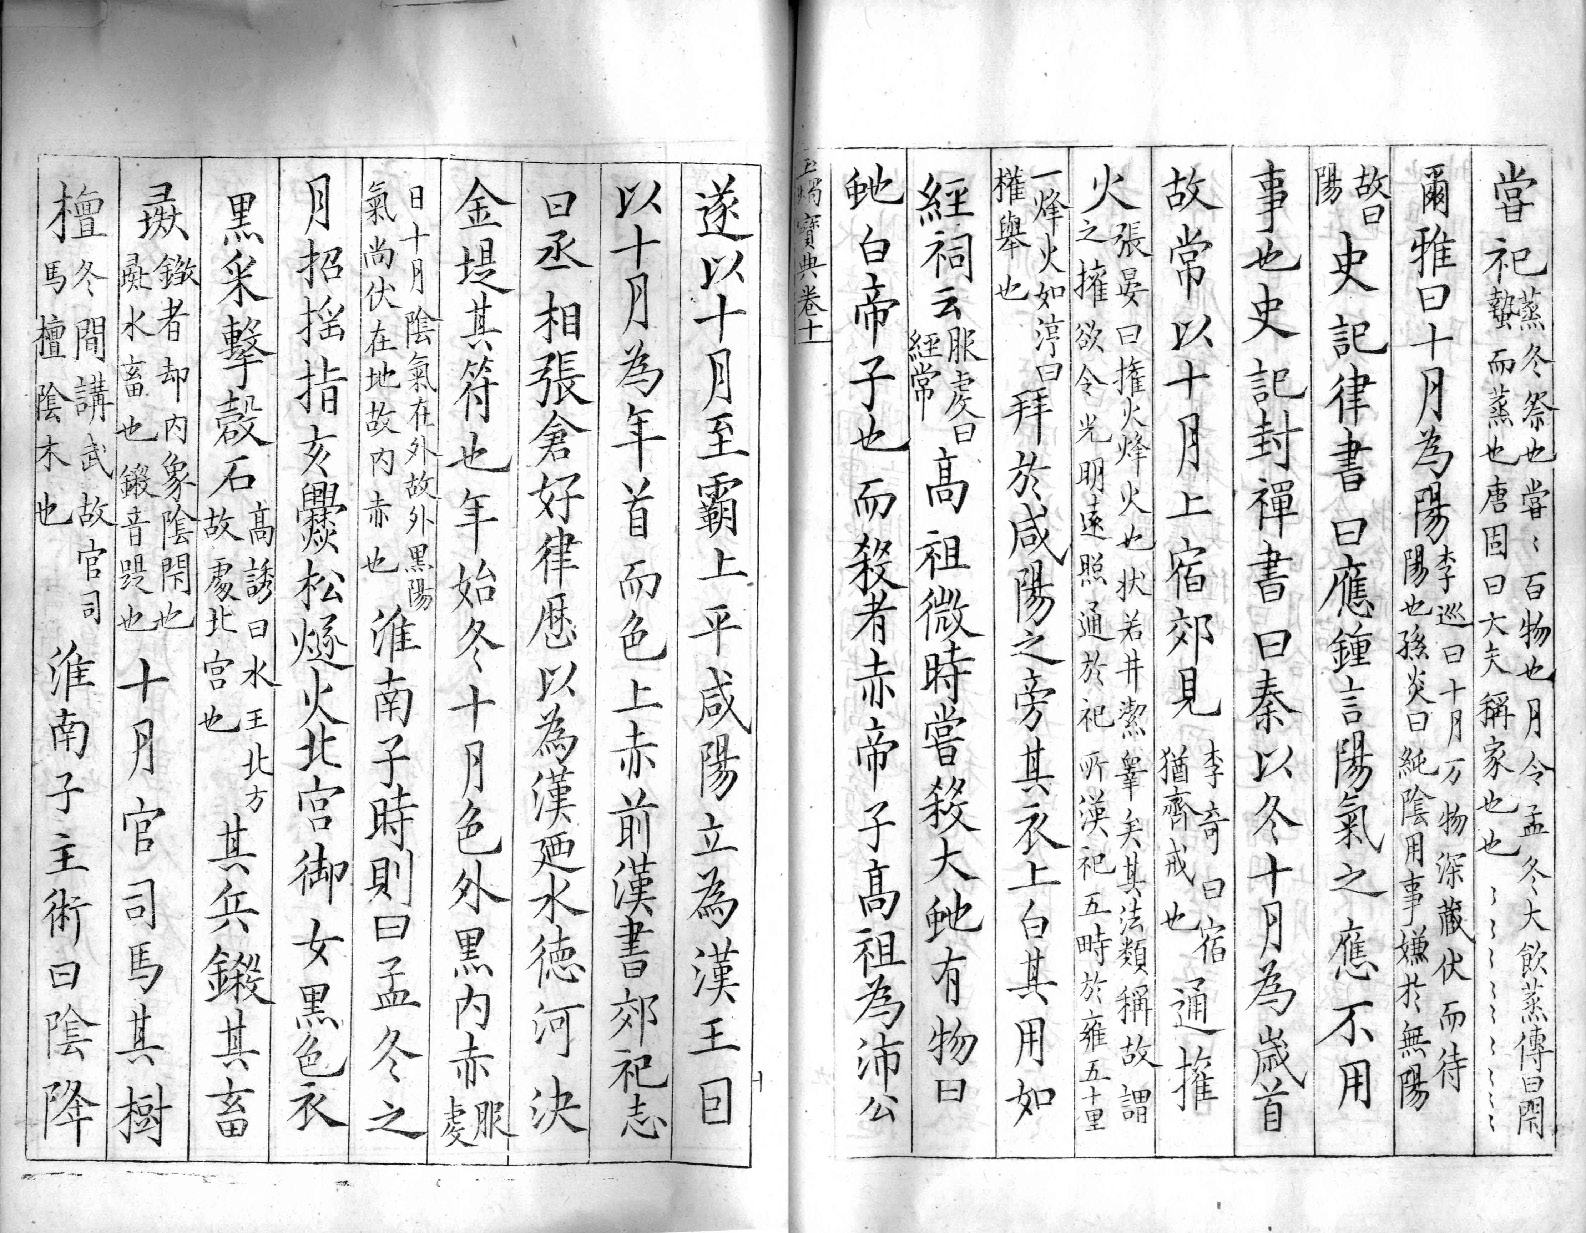 嘗祀蒸冬祭也嘗〻百物也月令孟冬大飲蒸傳曰閇
蟄而蒸也唐固曰大夫稱家也也
爾雅曰十月為陽李巡曰十月万物深藏伏而待
陽也孫炎曰純陰用事嫌於無陽
故曰
陽史記律書曰應鍾言陽氣之應不用
事也史記封禪書曰秦以冬十月為歲首
故常以十月上宿郊見李奇曰宿
猶齊戒也通擁
火張晏曰擁火烽火也狀若井潔皋矣其法類稱故謂
之擁欲令光明遠照通於祀所漢祀五畤於雍五十里
一烽火如淳曰
權舉也拜於咸陽之旁其衣上白其用如
經祠云服虔曰
經常高祖微時嘗殺大虵有物曰
虵白帝子也而殺者赤帝子高祖為沛公
玉燭寶典卷十
遂以十月至霸上平咸陽立為漢王囙
以十月為年首而色上赤前漢書郊祀志
曰丞相張倉好律曆以為漢廼水德河決
金堤其符也年始冬十月色外黑內赤服虔
曰十月陰氣在外故外黑陽
氣尚伏在地故內赤也淮南子時則曰孟冬之
月招摇指亥爨松燧火北宮御女黑色衣
黑采擊磬石高誘曰水王北方
故處北宮也其兵鍛其畜
彘鍛者却內象陰閇也
彘水畜也鍛音踶也十月官司馬其樹
檀冬閒講武故官司
馬檀陰木也淮南子主術曰陰降